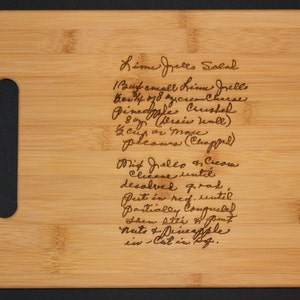 Lime Jello Salad
1 Box small Lime Jello
Box of 8 oz cream Cheese
Pineapple Crushed
8 oz. (Drain Well)
½ cup or More
pecans (Chopped)
Mix Jello & Cream
Cheese until
desolved good,
Put in ref. until
Partially congealed
then stir & put
nuts & Pineapple
in. Cut in Sq.